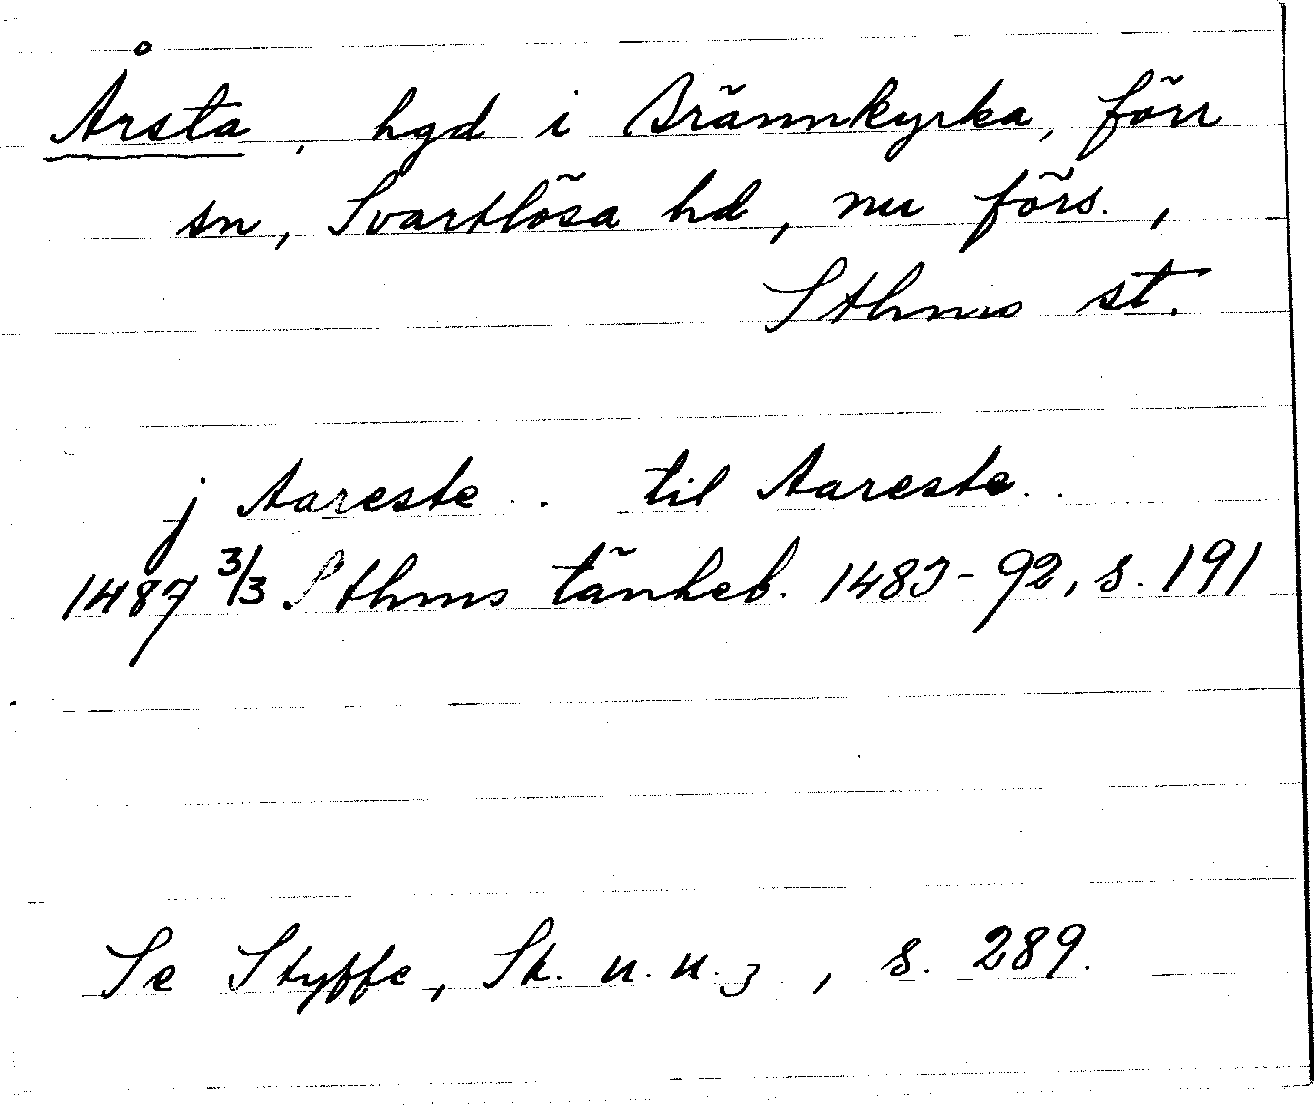 Årsta, hgd i Brännkyrka, förr
sn, Svartlösa hd, nu förs.,
Sthms st.
j Aareste .. til Aareste ..
1487 3/3 Sthms tänkeb. 1483-92, s. 191
Se Styffe, Sk. u. u. 3, s. 289.